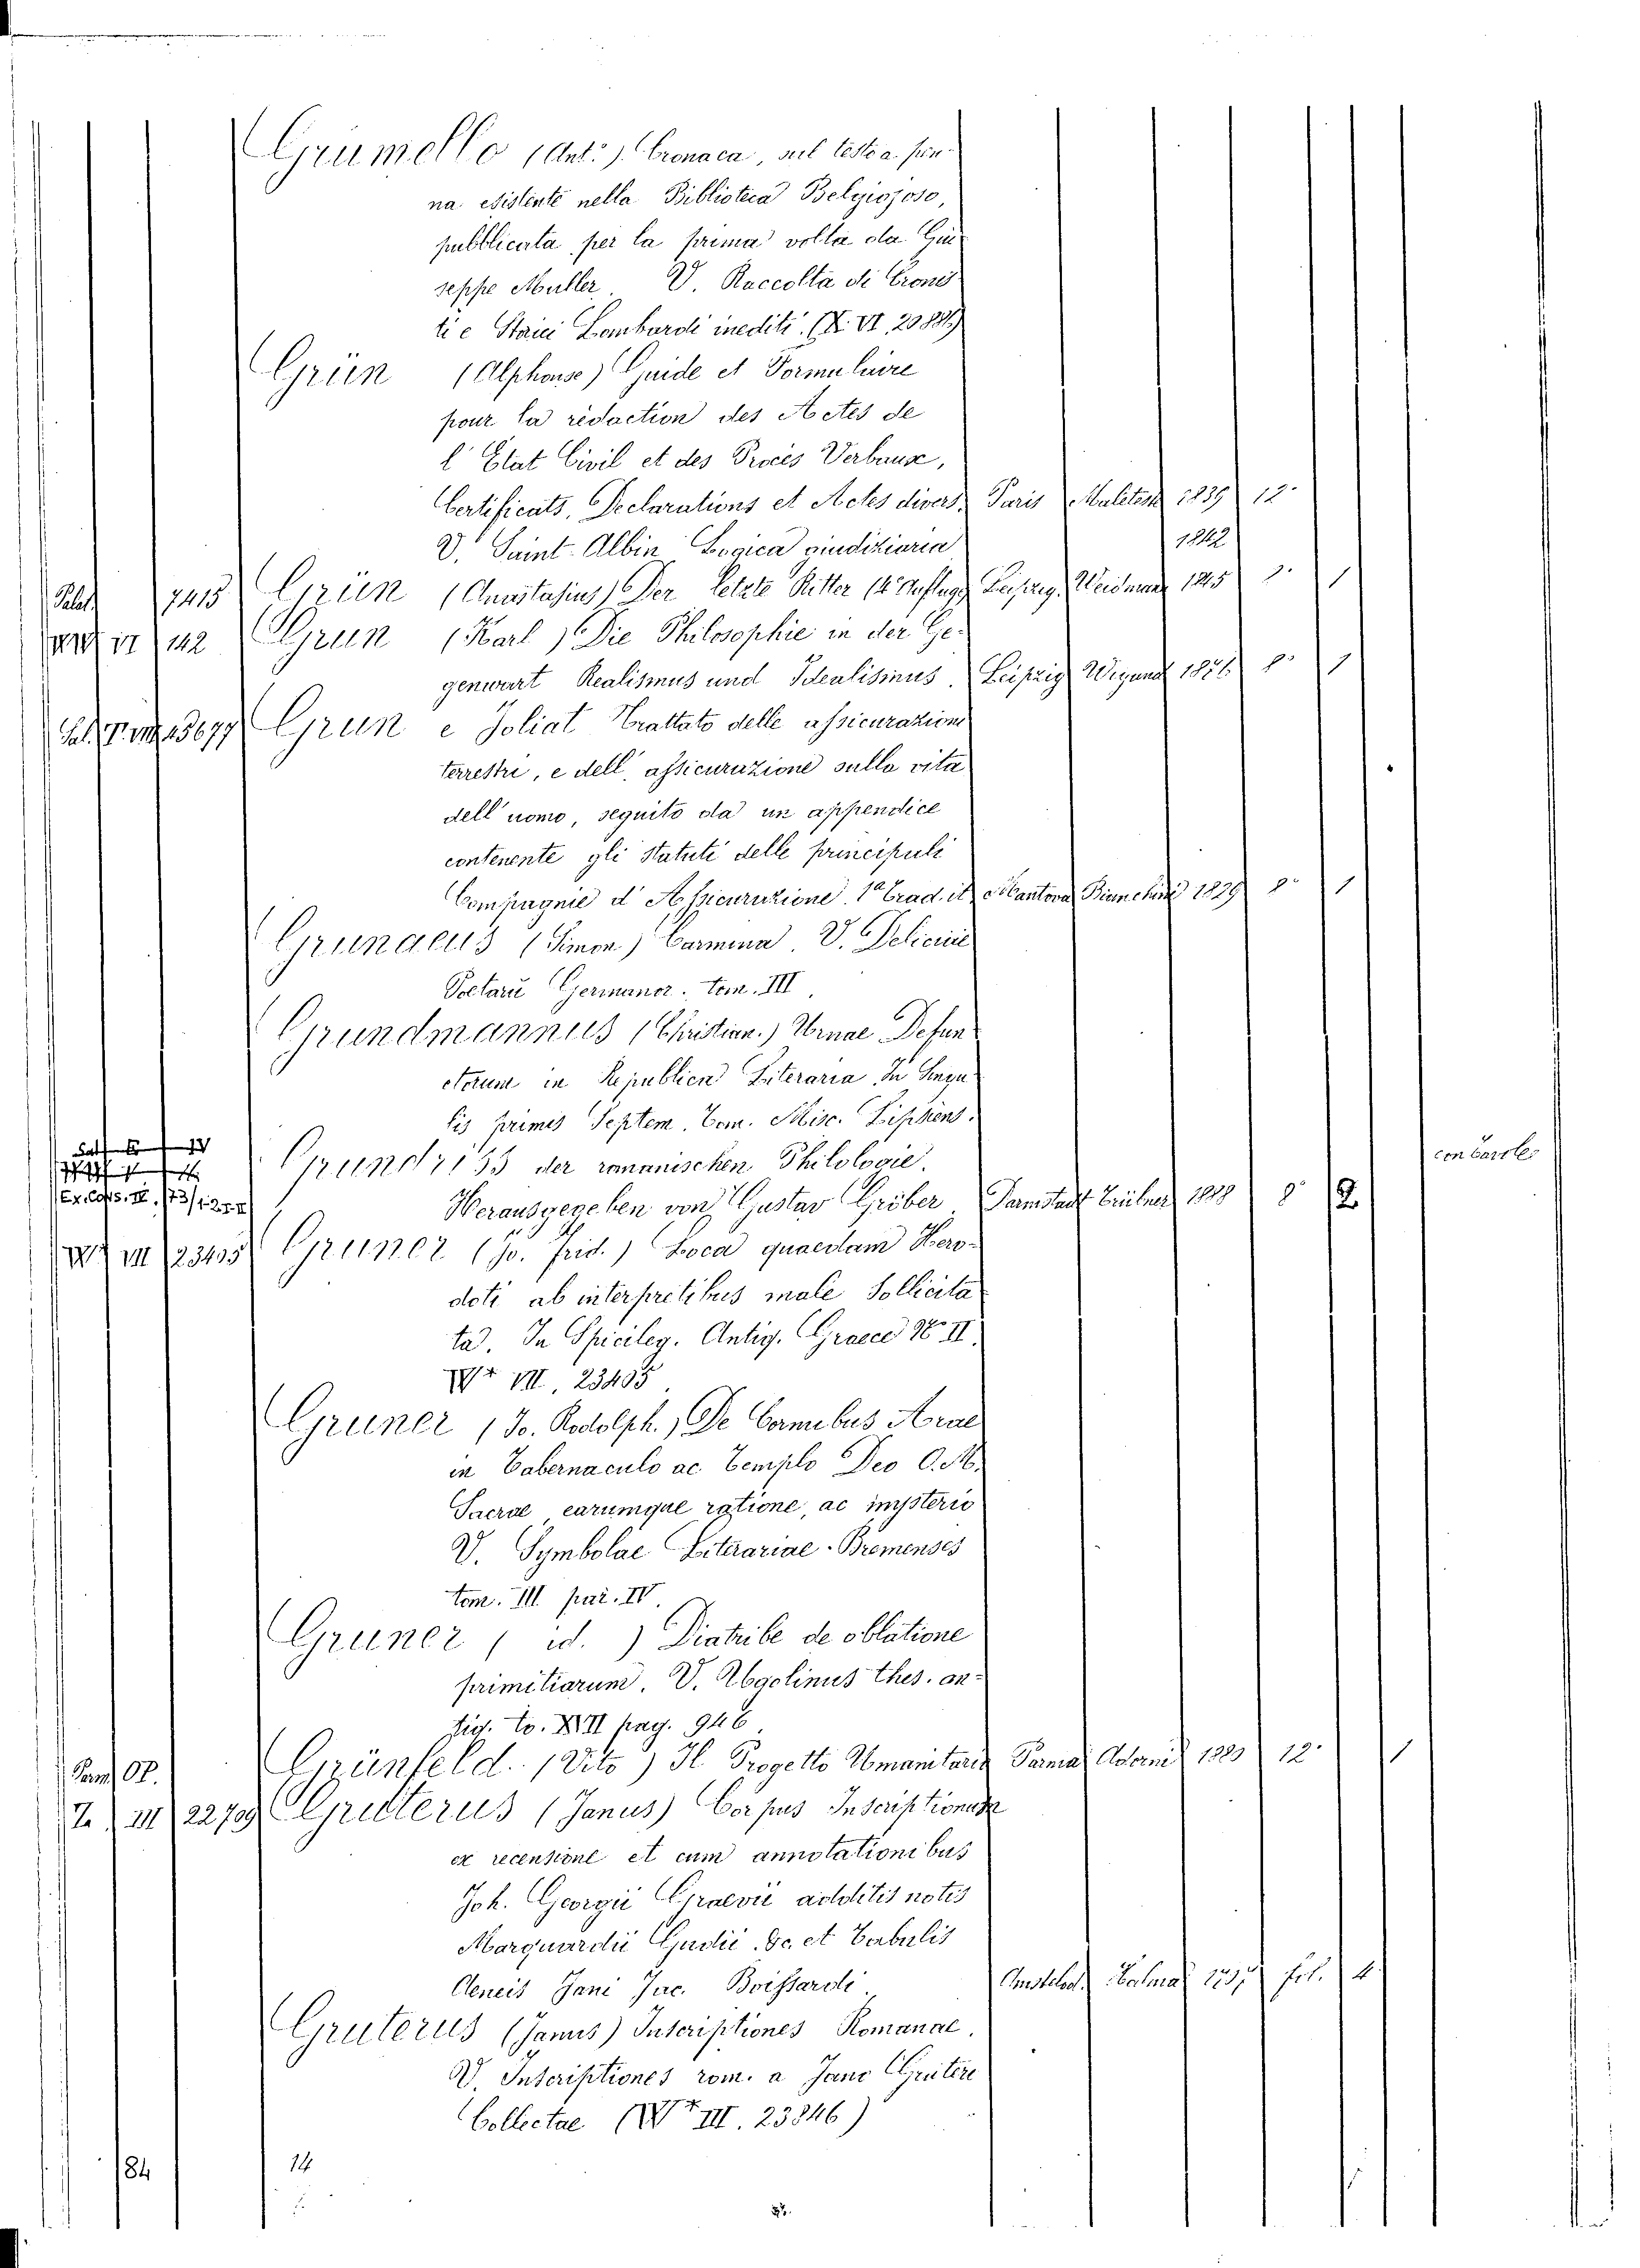 Grumello (Ant.°) Cronaca, sul testo a pen-
na esistente nella Biblioteca Belgiojoso,
pubblicata per la prima volta da Giu-
seppe Muller. V. Raccolta di Cronis-
ti e Storici Lombardi inediti. (X. VI, 20881)
Grün (Alphonse) Guide et Formulaire
pour la rédaction des Actes de
l'Etat Civil et des Procès Verbaux,
Certificats, Declarations et Actes divers. Paris 1839 12°
V. Saint-Albin Logica giudiziaria 1842
Palat 7415 Grün (Anastasius) Der letzte Ritter (4° Auflage) Leipzig. Weidmann 1845 8° 1
VI 142 Grun (Karl) Die Philosophie in der Ge-
genwart Realismus und Idealismus. Leipzig Wigand 1876 8° 1
15677 Grun e Joliat Trattato delle assicurazioni
terrestri, e dell'assicurazione sulla vita
dell'uomo, seguito da un appendice
contenente gli statuti delle principali
Compagnie d'Assicurazione. 1ª Trad. it. Mantova Bianchini 1829 8° 1
Grunaeus (Simon) Carmina. V. Deliciae
Poetarū Germanor. tom. III.
Grundmannus (Christian.) Urnae Defun-
ctorum in Republica Literaria In Singu-
lis primis Septem. Tom. Misc. Lipsiens.
Grundriss der romanischen Philologie.
Ex. Cons. IV. 173/1.2.I-II Herausgegeben von Gustav Gröber. Darmstadt Trübner 1888 8° 2 con cartle
VII 23495 Gruner (Jo. Frid.) Loca quaedam Hero-
doti ab interpretibus male Sollicita-
ta. In Spicileg. Antiq. Graece N° II.
W* VII, 23495
Gruner (Jo. Rodolph.) De Cornibus Arae
in Tabernaculo ac Templo Deo O. M.
Sacrae, earumque ratione, ac mysterio
V. Symbolae Literariae-Bremenses
tom. III par. IV.
Gruner (id.) Diatribe de oblatione
primitiarum. V. Ugolinus thes. an-
tiq. to. XVII pag. 946.
Parm OP. Grünfeld. (Vito) Il Progetto Umanitario Parma Adorni 1880 12° 1
Z. III 22709 Grutterus (Janus) Corpus Inscriptionum
ex recensione et cum annotationibus
Joh. Georgii Graevii additis notis
Marquardii Gudii &c. et Tabulis
Aeneis Jani Jac. Boissardi. Amstelod. Halma 1707 fol. 4
Gruterus (Janus) Inscriptiones Romanae.
V. Inscriptiones rom. a Jano Grutere
Collectae (W* III. 23846)
84
14